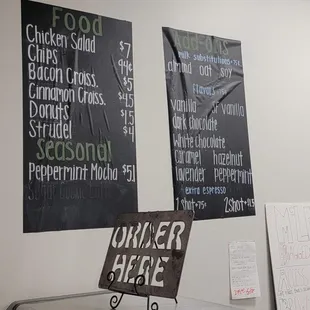 Food
Chicken Salad $7
Chips 94¢
Bacon Croiss. $5
Cinnamon Croiss. $4.5
Donuts $1.5
Strudel $4
Seasonal
Peppermint Mocha $5.1
Add-ons
milk substitutions
almond oat soy
Flavors
vanilla sf vanilla
dark chocolate
white chocolate
caramel hazelnut
lavender peppermint
extra espresso
1 shot 2 shot
ORDER
HERE